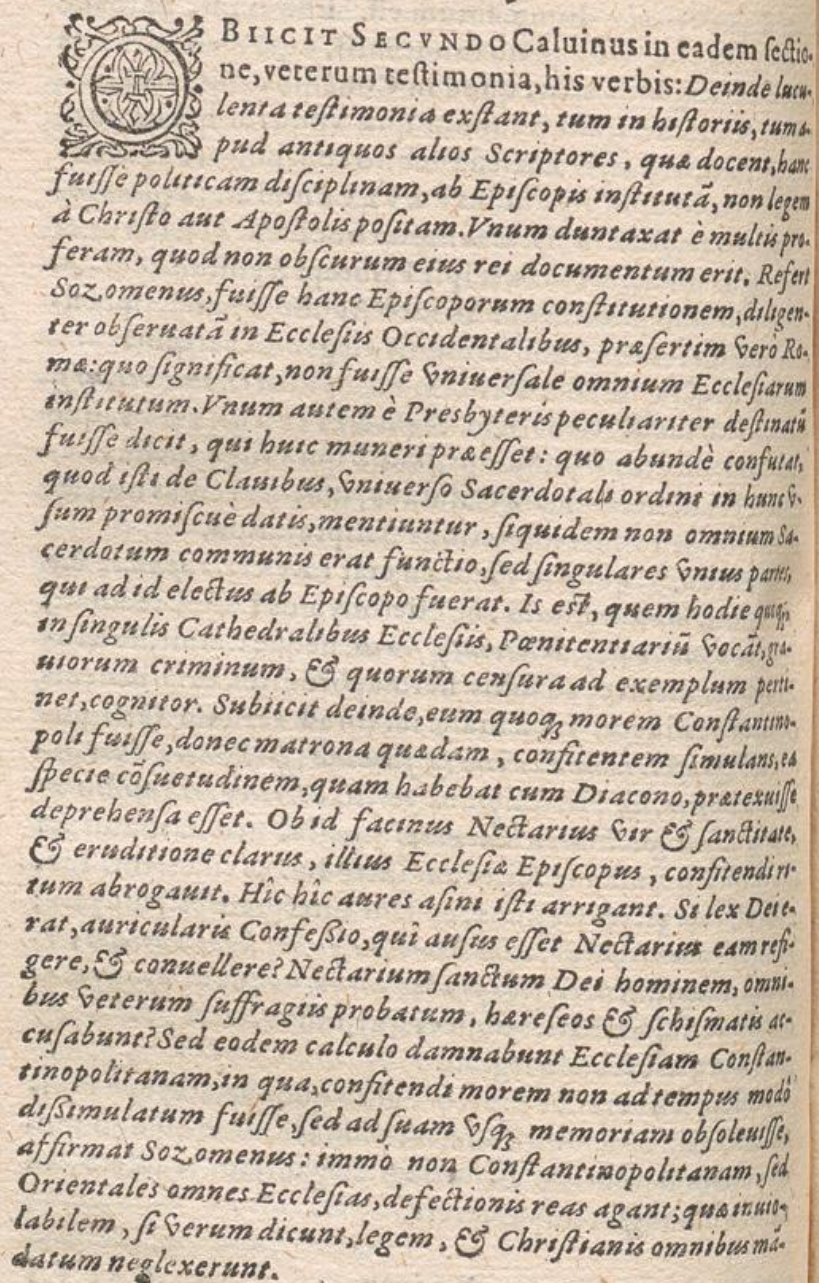 OBIICIT SECVNDO Caluinus in eadem sectio-
ne, veterum testimonia, his verbis: Deinde lucu-
lenta testimonia exstant, tum in historiis, tum a-
pud antiquos alios Scriptores, quæ docent, hanc
fuisse politicam disciplinam, ab Episcopis institutã, non legem
à Christo aut Apostolis positam. Vnum duntaxat è multis pro-
feram, quod non obscurum eius rei documentum erit. Refert
Sozomenus, fuisse hanc Episcoporum constitutionem, diligen-
ter obseruatã in Ecclesiis Occidentalibus, præsertim verò Ro-
mæ: quo significat, non fuisse vniuersale omnium Ecclesiarum
institutum. Vnum autem è Presbyteris peculiariter destinatũ
fuisse dicit, qui huic muneri præesset: quo abundè confutat,
quod isti de Clauibus, vniuerso Sacerdotali ordini in hunc v-
sum promiscuè datis, mentiuntur, siquidem non omnium Sa-
cerdotum communis erat functio, sed singulares vnius partes,
qui ad id electus ab Episcopo fuerat. Is est, quem hodie quoqꝫ
in singulis Cathedralibus Ecclesiis, Pœnitentiariũ vocãt, gra-
uiorum criminum, & quorum censura ad exemplum perti-
net, cognitor. Subiicit deinde, eum quoqꝫ morem Constantino-
poli fuisse, donec matrona quædam, confitentem simulans, ea
specie cõsuetudinem, quam habebat cum Diacono, prætexuisse
deprehensa esset. Ob id facinus Nectarius vir & sanctitate,
& eruditione clarus, illius Ecclesiæ Episcopus, confitendi ri-
tum abrogauit. Hîc hîc aures asini isti arrigant. Si lex Dei e-
rat, auricularis Confeßio, quî ausus esset Nectarius eam refi-
gere, & conuellere? Nectarium sanctum Dei hominem, omni-
bus veterum suffragiis probatum, hæreseos & schismatis ac-
cusabunt? Sed eodem calculo damnabunt Ecclesiam Constan-
tinopolitanam, in qua, confitendi morem non ad tempus modò
dißimulatum fuisse, sed ad suam vsqꝫ memoriam obsoleuisse,
affirmat Sozomenus: immò non Constantinopolitanam, sed
Orientales omnes Ecclesias, defectionis reas agant; quæ inuio-
labilem, si verum dicunt, legem, & Christianis omnibus mã-
datum neglexerunt.